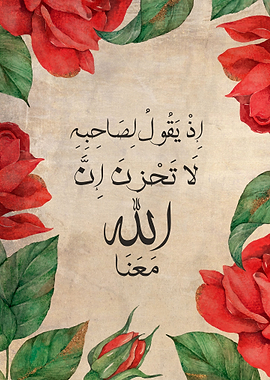 إِذْ يَقُولُ لِصَاحِبِهِ
لَا تَحْزَنْ إِنَّ
اللَّه
مَعَنَا